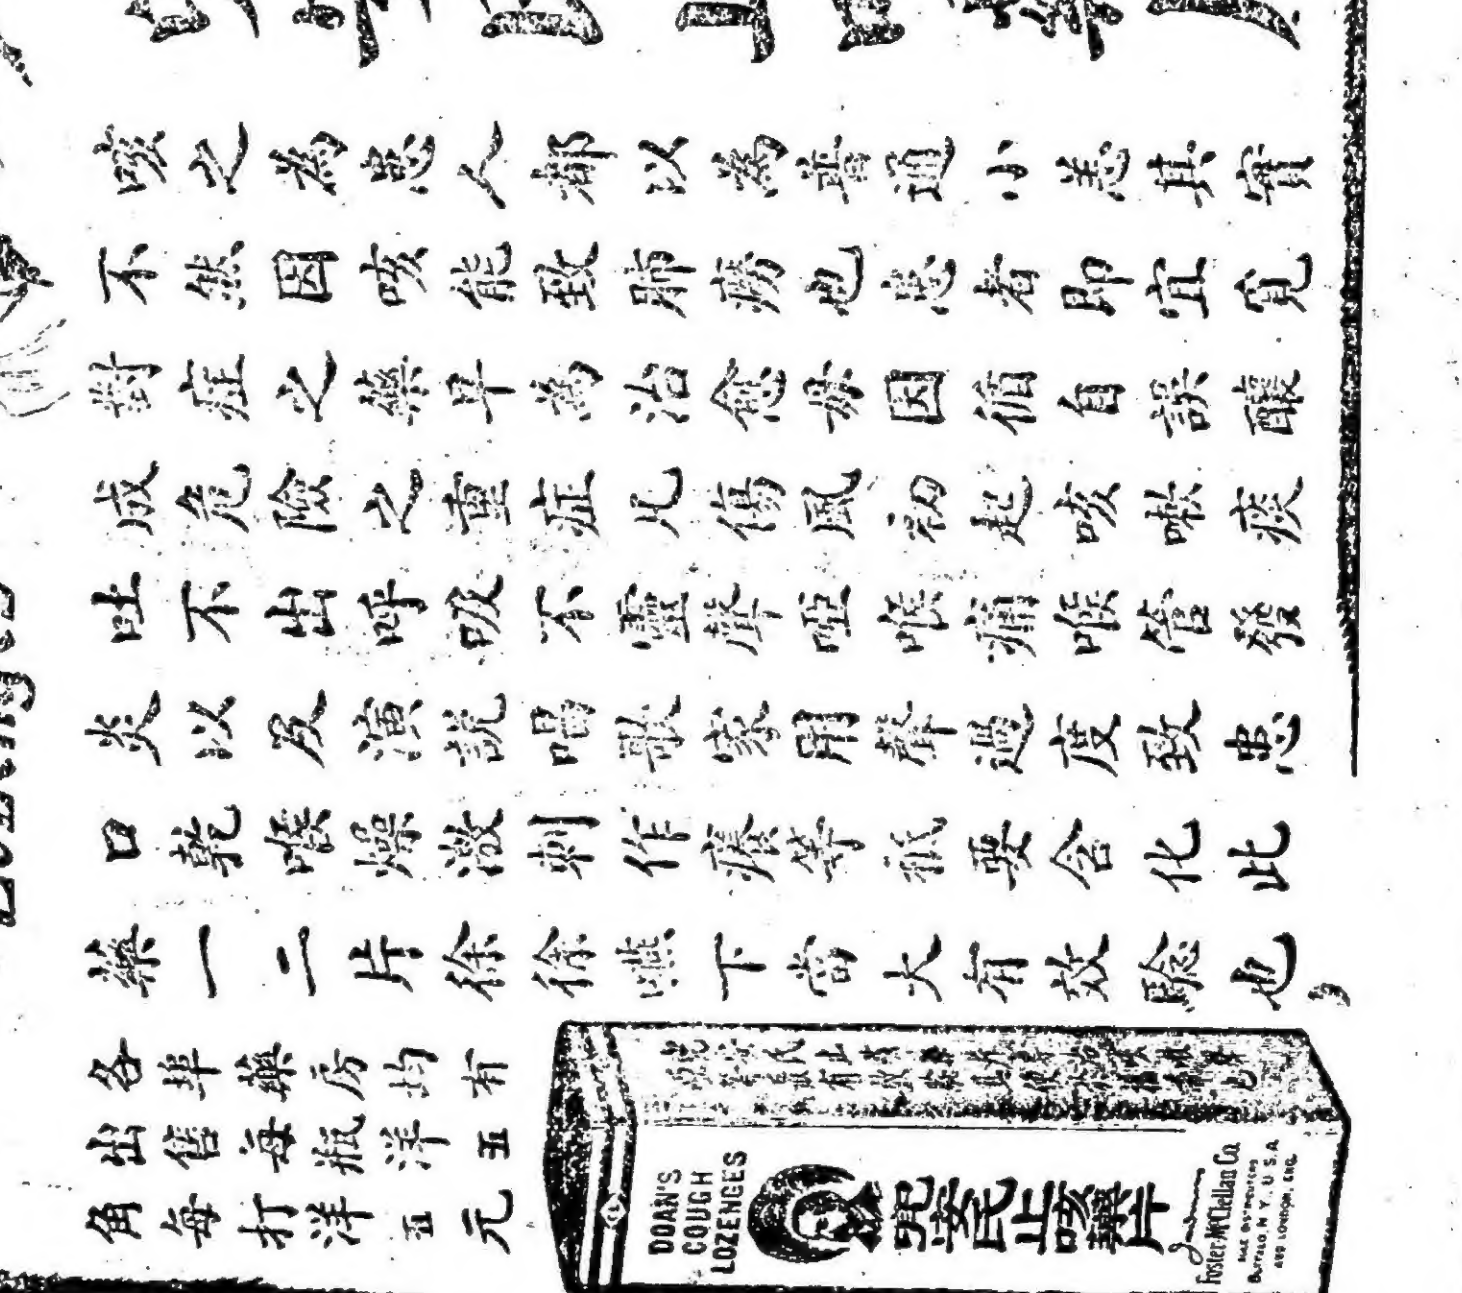 咳之為患人都以為普通小恙其實
不然因咳能致肺癆也患者即宜覓
對症之藥早為治愈毋因循自誤釀
成危險之重症凡傷風初起咳嗽痰
吐不出呼吸不靈聲啞喉痛喉管發
炎以及演說唱歌家用聲過度致患
口乾喉燥激刺作癢等祇要含化此
藥一二片徐徐嚥下當大有效驗也
各埠藥房均有
出售每瓶洋五
角每打洋五元
DOAN'S
COUGH
LOZENGES
兜安氏止咳藥片
Foster-McClellan Co.
BUFFALO, N.Y., U.S.A.
AND LONDON, ENG.